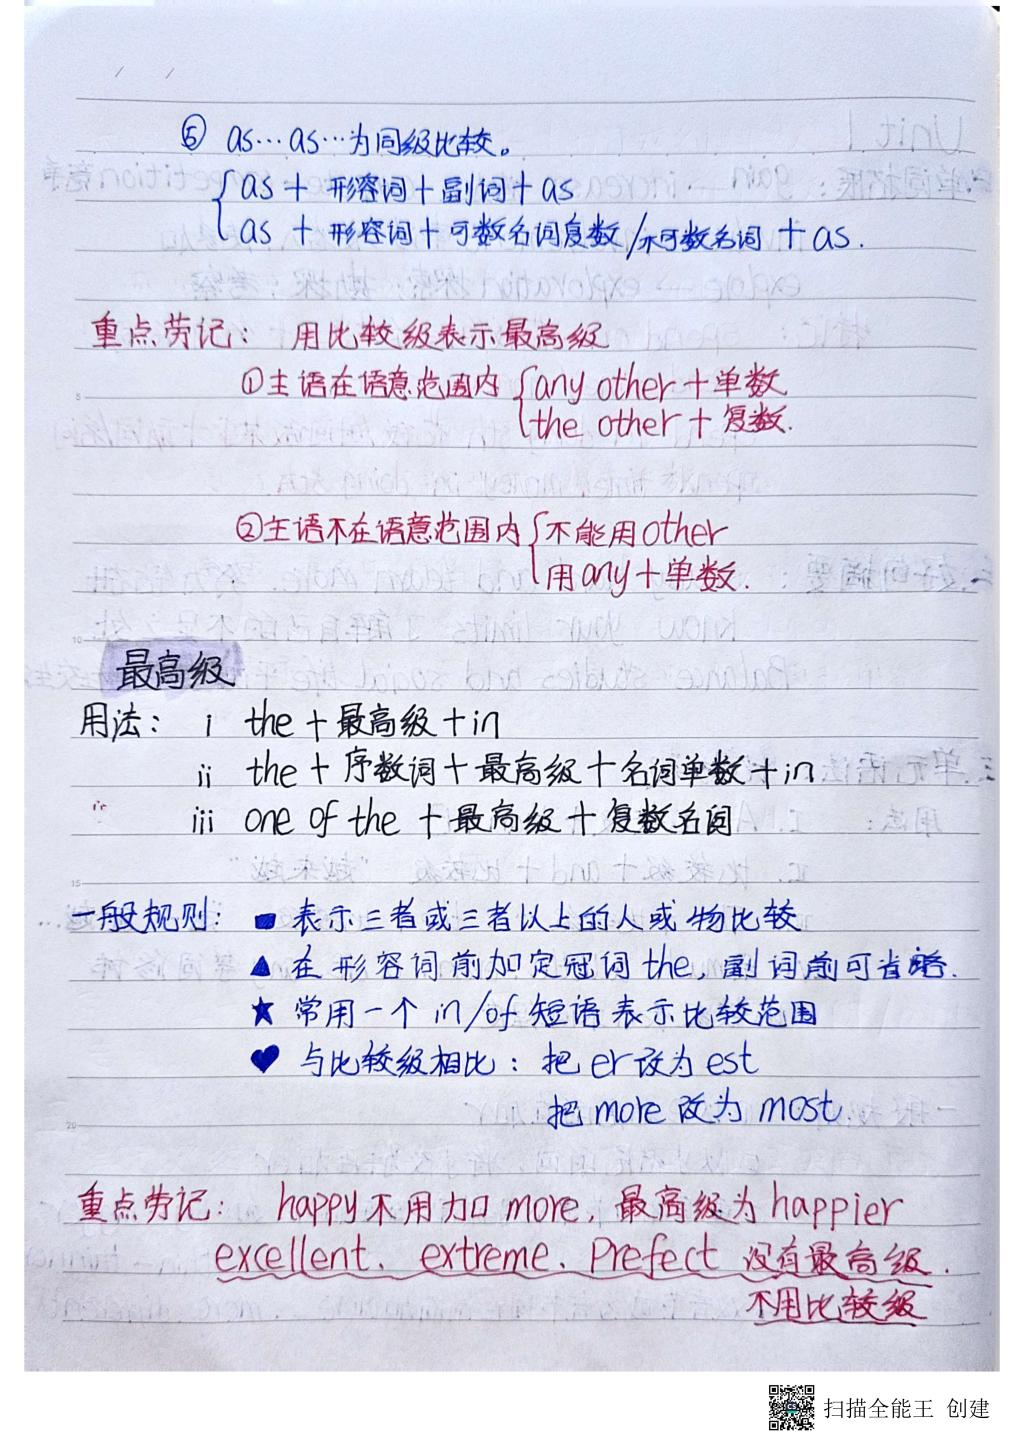 ⑥ as…as…为同级比较。
as + 形容词+副词+as
as + 形容词+可数名词复数/不可数名词 +as.
重点劳记: 用比较级表示最高级
①主语在语意范围内 any other+单数
the other + 复数.
②主语不在语意范围内 不能用other
用any+单数.
最高级
用法: i the +最高级+in
ii the + 序数词+最高级+名词单数+in
iii one of the +最高级+复数名词
一般规则: ■ 表示三者或三者以上的人或物比较
▲ 在形容词前加定冠词the, 副词前可省略.
★ 常用一个in/of短语表示比较范围
♥ 与比较级相比: 把er改为est
把more改为most.
重点劳记: happy不用加more, 最高级为happier
excellent、extreme、Prefect 没有最高级.
不用比较级
扫描全能王 创建